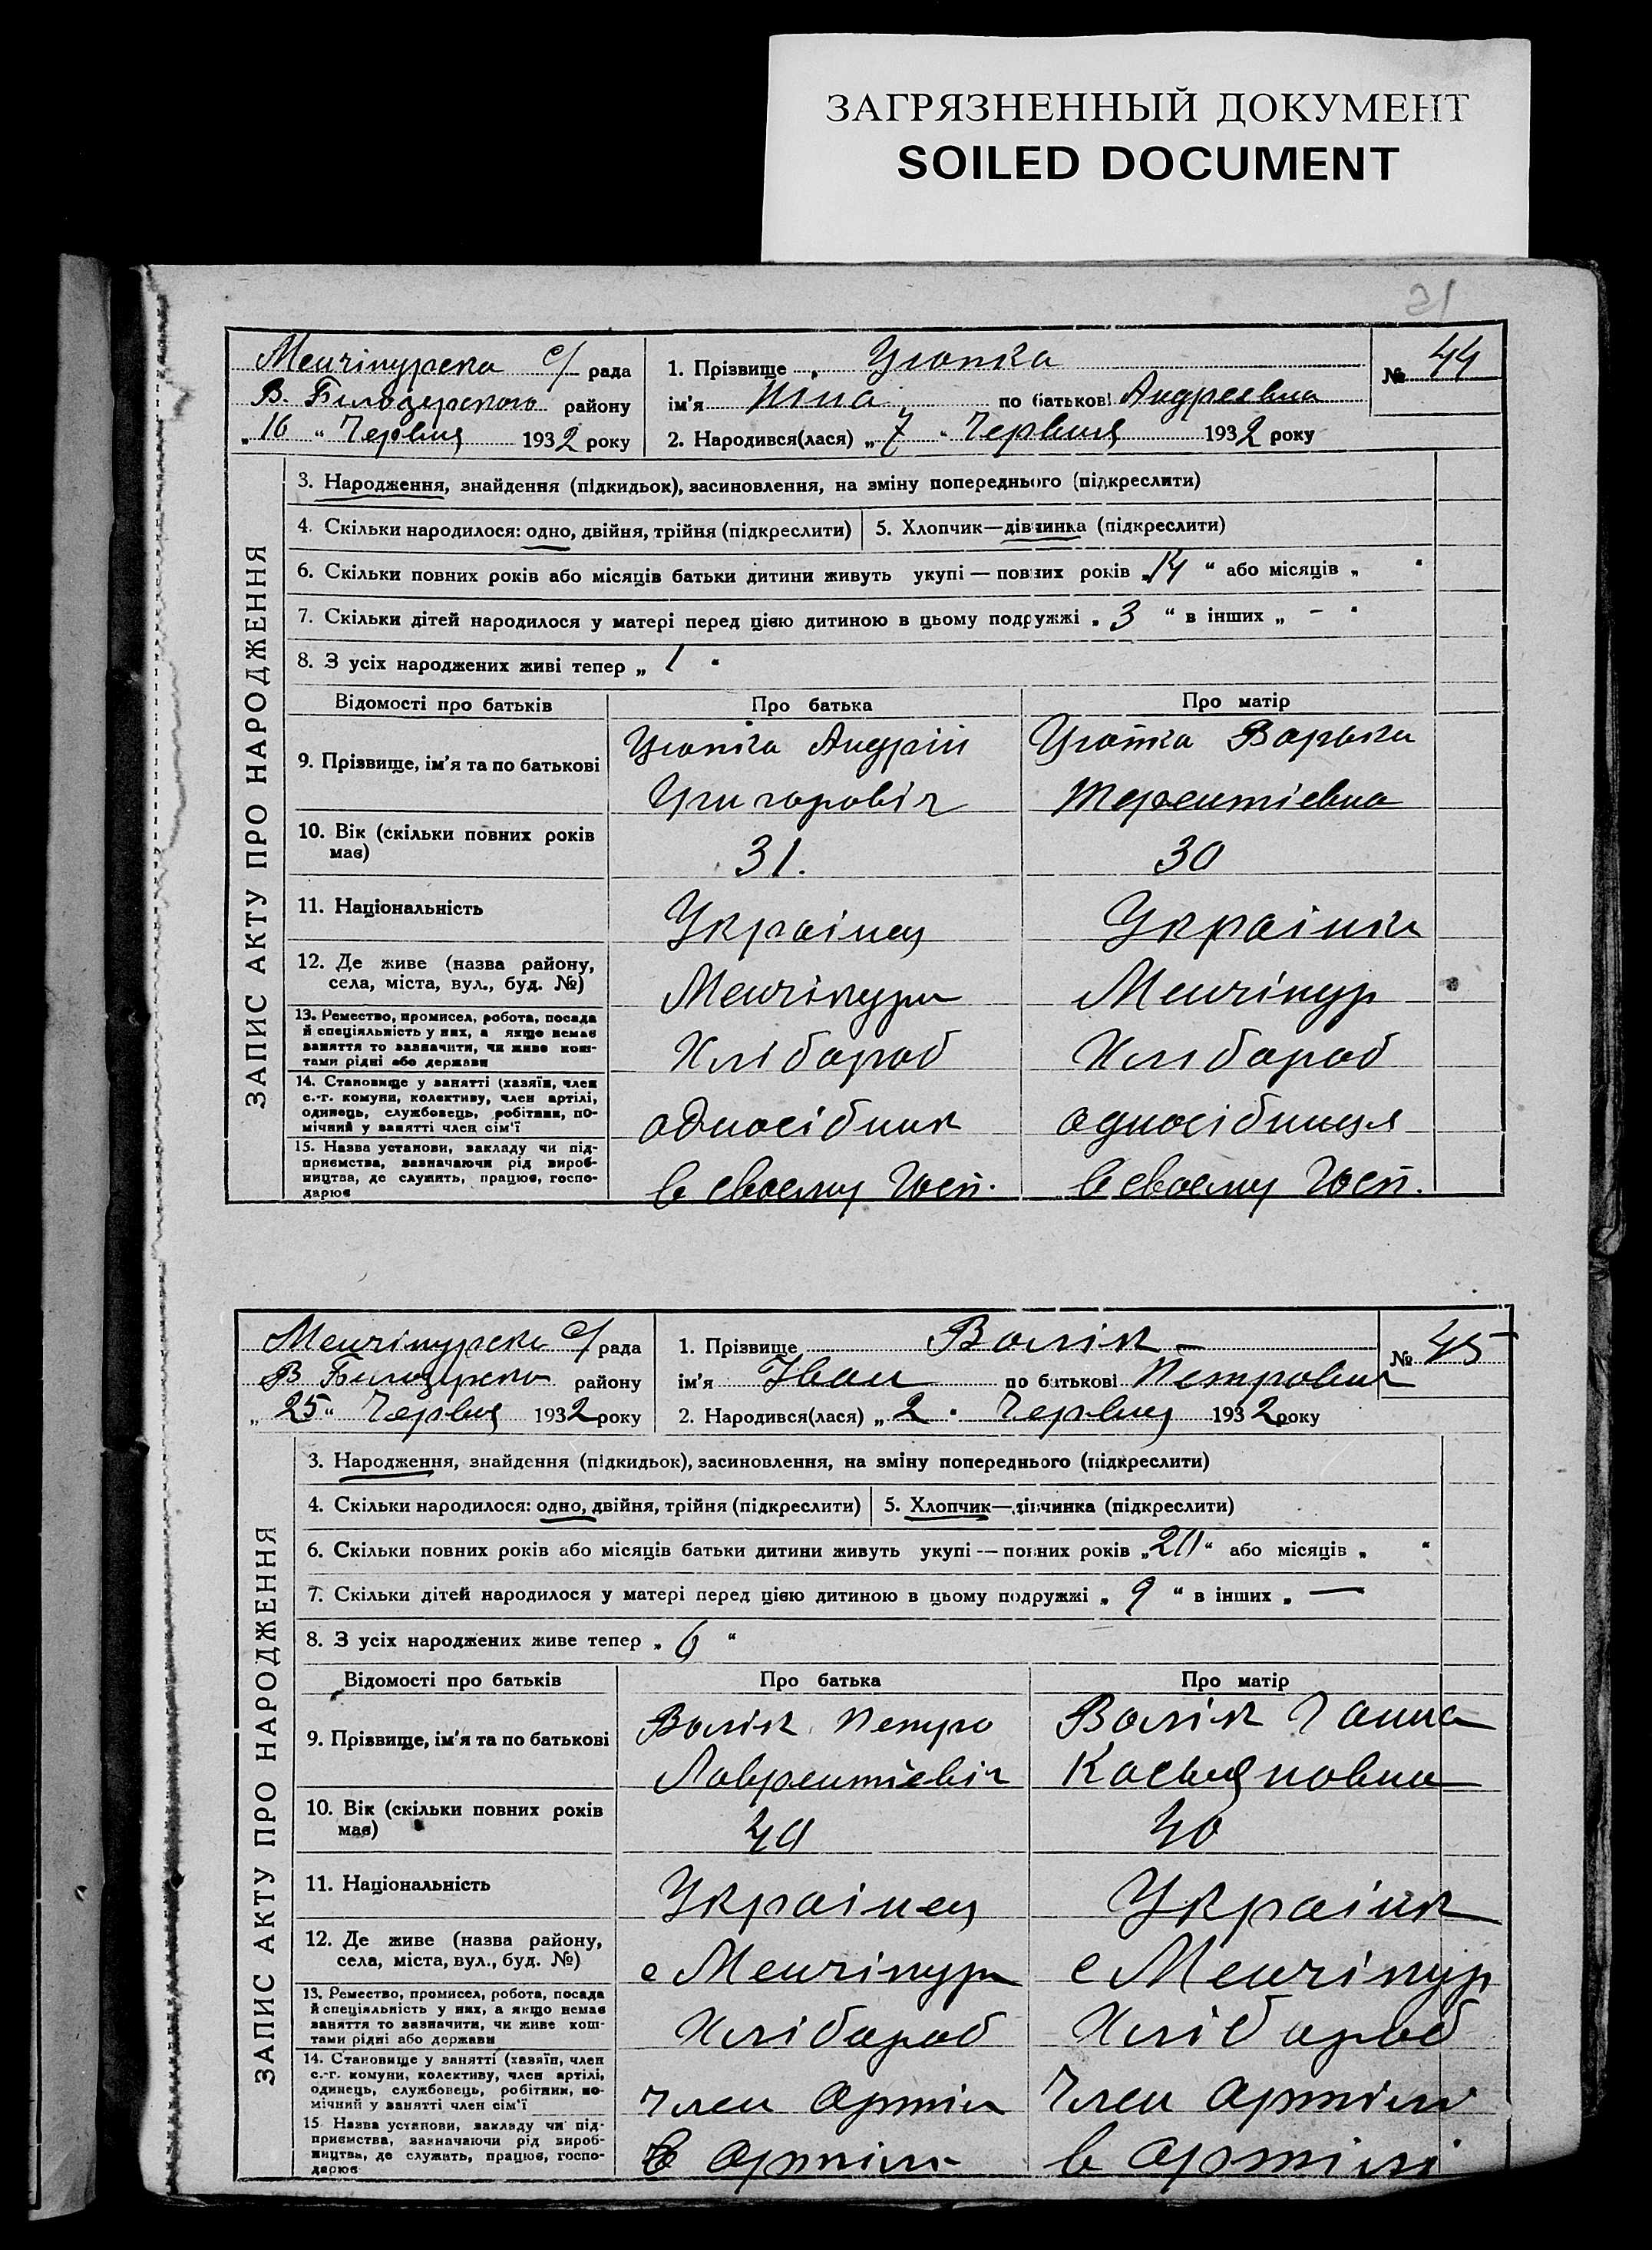 ЗАГРЯЗНЕННЫЙ ДОКУМЕНТ
SOILED DOCUMENT
21
Менчікурска с/рада
В. Білозерского району
„16“ Червня 1932 року
1. Прізвище Цюпка
№ 44
ім'я Ніна по батькові Андреевна
2. Народився(лася) „7“ Червня 1932 року
ЗАПИС АКТУ ПРО НАРОДЖЕННЯ
3. Народження, знайдення (підкидьок), засиновлення, на зміну попереднього (підкреслити)
4. Скільки народилося: одно, двійня, трійня (підкреслити) 5. Хлопчик—дівчинка (підкреслити)
6. Скільки повних років або місяців батьки дитини живуть укупі — повних років „14“ або місяців „ “
7. Скільки дітей народилося у матері перед цією дитиною в цьому подружжі „3“ в інших „–“
8. З усіх народжених живі тепер „1“
Відомості про батьків Про батька Про матір
9. Прізвище, ім'я та по батькові
Цюпка Андрій
Григоровіч
Цюпка Варька
Терентіевна
10. Вік (скільки повних років має)
31.
30
11. Національність
Українец
Українка
12. Де живе (назва району,
села, міста, вул., буд. №)
Менчікури
Менчікур
13. Ремество, промисел, робота, посада
й спеціяльність у них, а якщо немає
заняття то зазначити, чи живе кош-
тами рідні або держави
Хлібороб
Хлібороб
14. Становище у занятті (хазяїн, член
с.-г. комуни, колективу, член артілі,
одинець, службовець, робітник, по-
мічний у занятті член сім'ї
односібник
односібниця
15. Назва установи, закладу чи під-
приємства, зазначаючи рід вироб-
ництва, де служить, працює, госпо-
дарює
в своему госп.
в своему госп.
Менчікурска с/рада
В Білозерского району
„25“ Червня 1932 року
1. Прізвище Волік
№ 45
ім'я Іван по батькові Петрович
2. Народився(лася) „2“ Червня 1932 року
ЗАПИС АКТУ ПРО НАРОДЖЕННЯ
3. Народження, знайдення (підкидьок), засиновлення, на зміну попереднього (підкреслити)
4. Скільки народилося: одно, двійня, трійня (підкреслити) 5. Хлопчик—дівчинка (підкреслити)
6. Скільки повних років або місяців батьки дитини живуть укупі — повних років „20“ або місяців „ “
7. Скільки дітей народилося у матері перед цією дитиною в цьому подружжі „9“ в інших „ —
8. З усіх народжених живе тепер „6“
Відомості про батьків Про батька Про матір
9. Прізвище, ім'я та по батькові
Волік Петро
Лаврентіевіч
Волік Ганна
Касьяновна
10. Вік (скільки повних років має)
40
40
11. Національність
Українец
Українк
12. Де живе (назва району,
села, міста, вул., буд. №)
с Менчікури
с Менчікур
13. Ремество, промисел, робота, посада
й спеціяльність у них, а якщо немає
заняття то зазначити, чи живе кош-
тами рідні або держави
Хлібороб
Хлібороб
14. Становище у занятті (хазяїн, член
с.-г. комуни, колективу, член артілі,
одинець, службовець, робітник, по-
мічний у занятті член сім'ї
член артіли
член артіли
15. Назва установи, закладу чи під-
приємства, зазначаючи рід вироб-
ництва, де служить, працює, госпо-
дарює
в артіли
в артілі